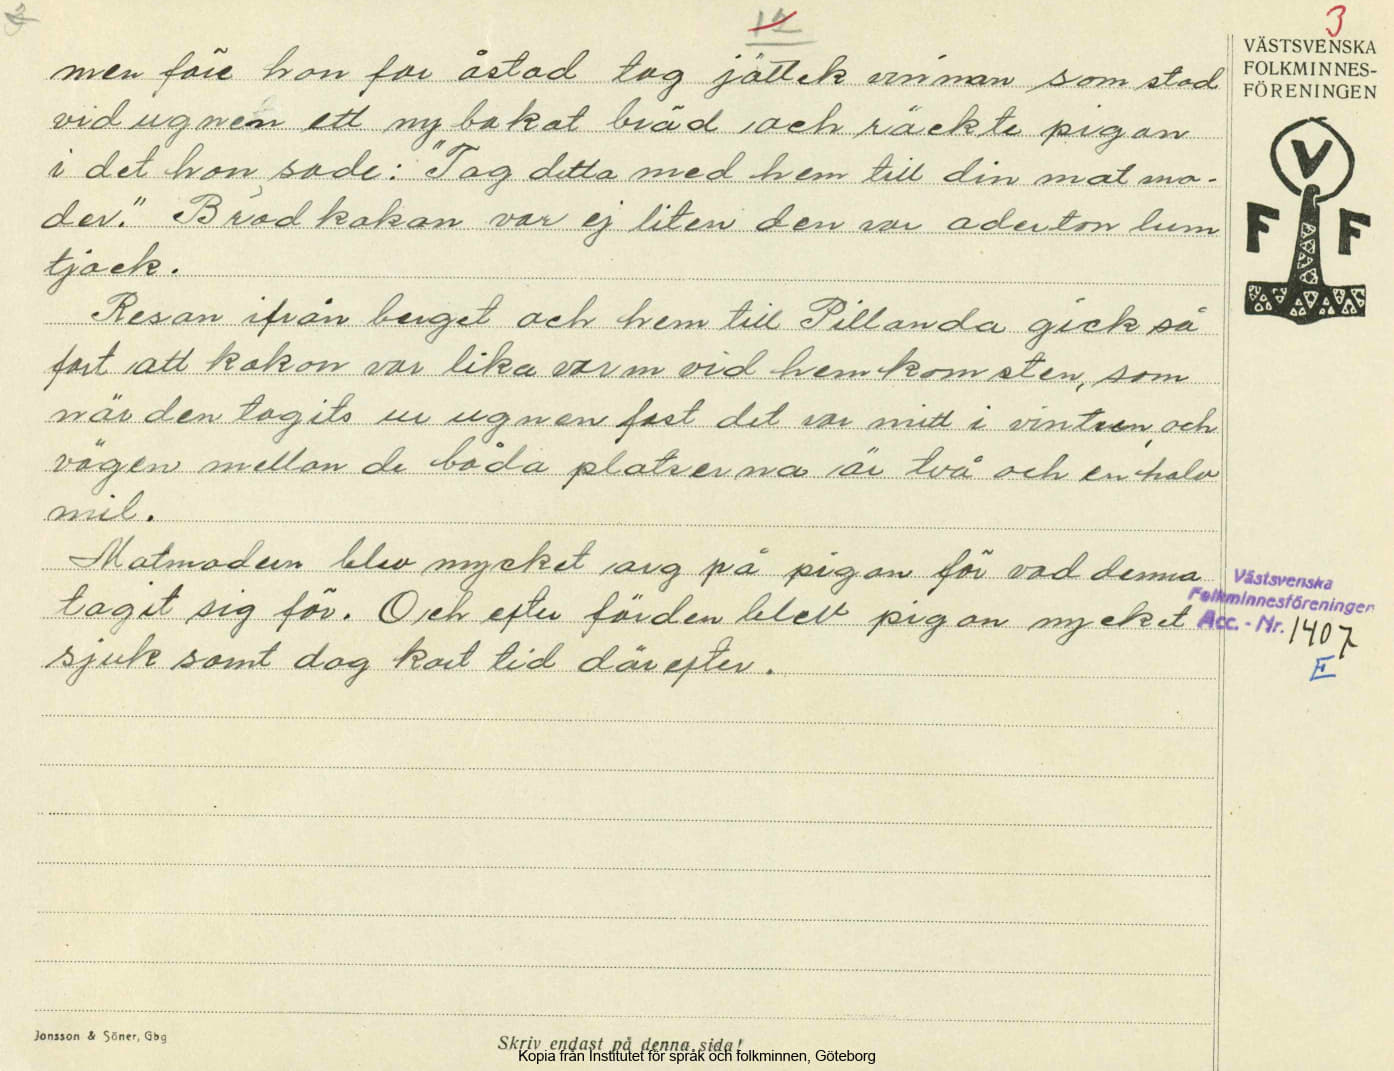 12
3
men före hon for åstad tog jättekvinnan som stod
vid ugnen ett nybakat bröd och räckte pigan
i det hon sade: "Tag detta med hem till din matmo-
der." Brödkakan var ej liten den var aderton tum
tjock.
Resan ifrån berget och hem till Pillanda gick så
fort att kakan var lika varm vid hemkomsten, som
när den tagits ur ugnen fast det var mitt i vintern, och
vägen mellan de båda platserna är två och en halv
mil.
Matmodern blev mycket arg på pigan för vad denna
tagit sig för. Och efter färden blev pigan mycket
sjuk samt dog kort tid därefter.
VÄSTSVENSKA
FOLKMINNES-
FÖRENINGEN
V
F F
Västsvenska
Folkminnesföreningen
Acc. - Nr. 1407
E
Jonsson & Söner, Gbg
Skriv endast på denna sida!
Kopia från Institutet för språk och folkminnen, Göteborg